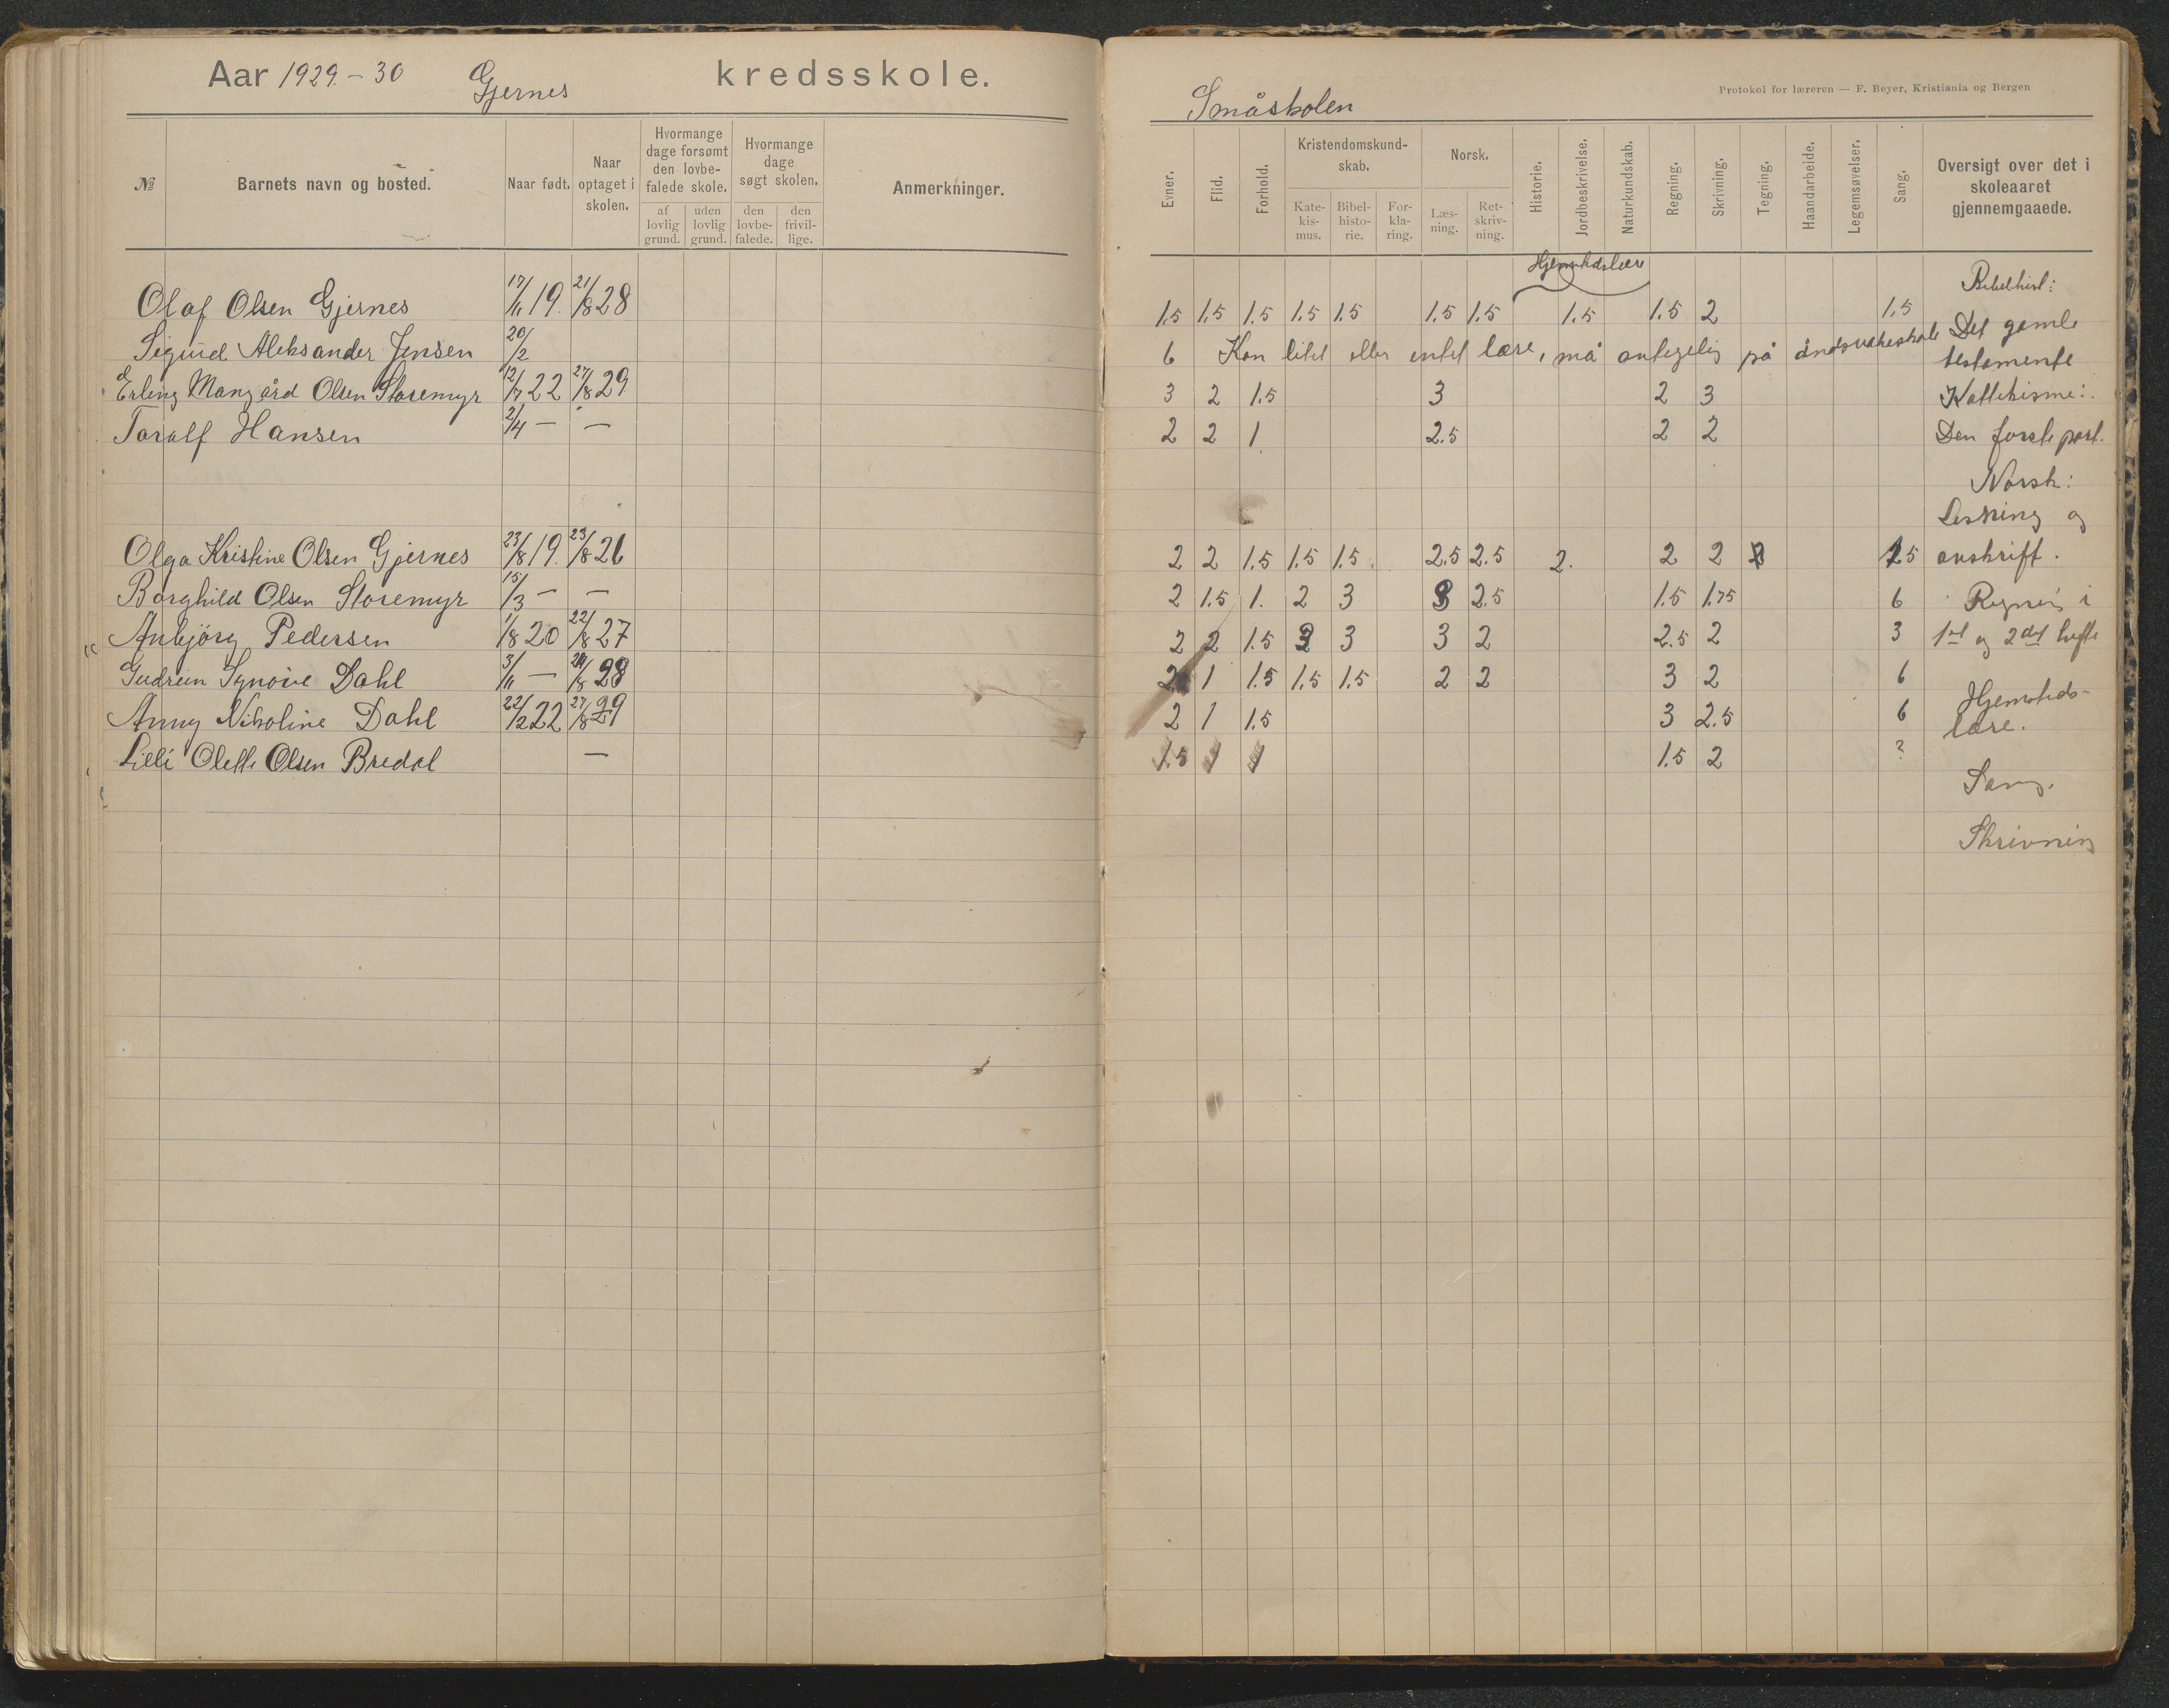 Aar 1929.-30 Gjernes kredsskole.
Småskolen
Protokol for læreren — F. Beyer, Kristiania og Bergen
№ Barnets navn og bosted. Naar født. Naar optaget i skolen. Hvormange dage forsømt den lovbefalede skole. af lovlig grund. uden lovlig grund. Hvormange dage søgt skolen. den lovbefalede. den frivillige. Anmerkninger.
Evner. Flid. Forhold. Kristendomskundskab. Katekismus. Bibelhistorie. Forklaring. Norsk. Læsning. Retskrivning. Historie. Jordbeskrivelse. Naturkundskab. Regning. Skrivning. Tegning. Haandarbeide. Legemsøvelser. Sang. Oversigt over det i skoleaaret gjennemgaaede.
Hjemstedslære
Bibelhist:
Olaf Olsen Gjernes 17/11 19. 21/8 28 1.5 1.5 1.5 1.5 1.5 1.5 1.5 1.5 1.5 2 1.5
Det gamle
Sigurd Aleksander Jensen 20/2 6 Kan litet eller intet lære, må antagelig på åndsvakeskole
testamente
Erling Mangård Olsen Storemyr 12/7 22 27/8 29 3 2 1.5 3 2 3
Kattekisme:
Toralf Hansen 2/4 — — 2 2 1. 2.5 2 2
Den første part.
Norsk:
Lesning og
Olga Kristine Olsen Gjernes 23/8 19. 23/8 26 2 2 1.5 1.5 1.5 2.5 2.5 2. 2 2 2.5
avskrift.
Borghild Olsen Storemyr 15/3 — — 2 1.5 1. 2 3 3 2.5 1.5 1.75 6
Regning i
Anbjörg Pedersen 1/8 20 22/8 27 2 2 1.5 3 3 3 2 2.5 2 3
1st og 2det hefte
Gudrun Synøve Dahl 3/11 — 21/8 28 2 1 1.5 1.5 1.5 2 2 3 2 6
Hjemsteds-
Anny Nikoline Dahl 22/2 22 27/8 29 2 1 1.5 3 2.5 6
lære.
Lilli Olette Olsen Bredal — 1.5 1 1 1.5 2 ?
Sang.
Skrivning